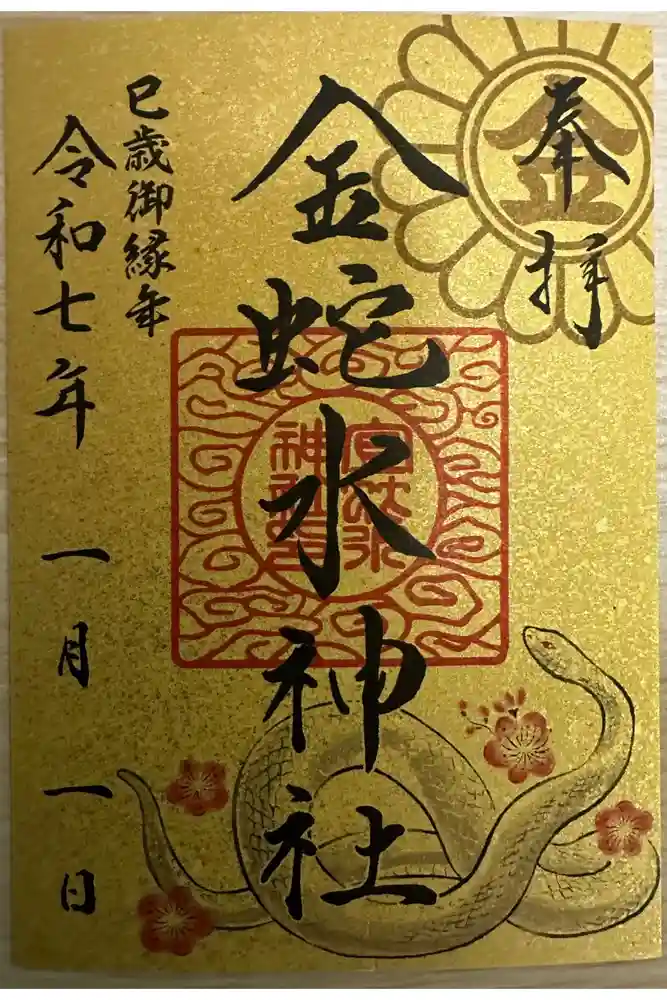 奉拝
金
金蛇水神社
巳歳御縁年
令和七年 一月 一日